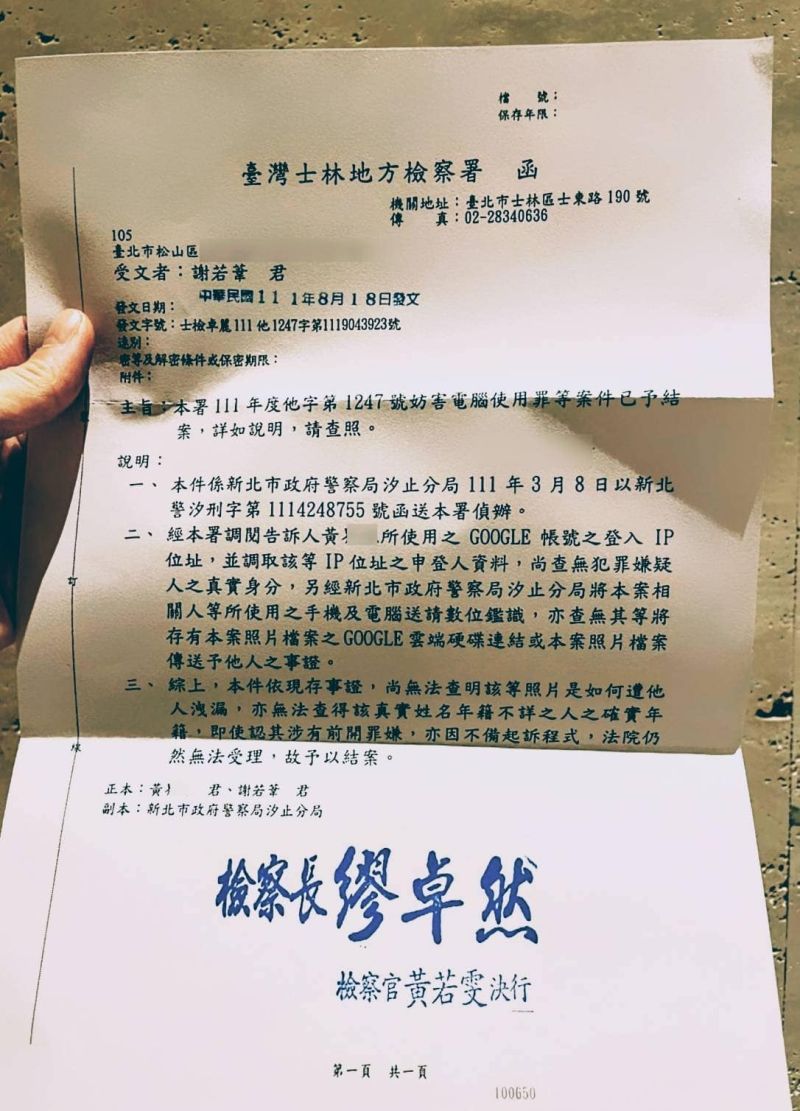 檔　　號：
保存年限：
臺灣士林地方檢察署　函
機關地址：臺北市士林區士東路190號
傳　　真：02-28340636
105
臺北市松山區
受文者：謝若葦　君
發文日期：中華民國111年8月18日發文
發文字號：士檢卓麗111他1247字第1119043923號
速別：
密等及解密條件或保密期限：
附件：
主旨：本署111年度他字第1247號妨害電腦使用罪等案件已予結
案，詳如說明，請查照。
說明：
一、本件係新北市政府警察局汐止分局111年3月8日以新北
警汐刑字第1114248755號函送本署偵辦。
二、經本署調閱告訴人黃 所使用之GOOGLE帳號之登入IP
位址，並調取該等IP位址之申登人資料，尚查無犯罪嫌疑
人之真實身分，另經新北市政府警察局汐止分局將本案相
關人等所使用之手機及電腦送請數位鑑識，亦查無其等將
存有本案照片檔案之GOOGLE雲端硬碟連結或本案照片檔案
傳送予他人之事證。
三、綜上，本件依現存事證，尚無法查明該等照片是如何遭他
人洩漏，亦無法查得該真實姓名年籍不詳之人之確實年
籍，即使認其涉有前開罪嫌，亦因不備起訴程式，法院仍
然無法受理，故予以結案。
訂
線
正本：黃　　君、謝若葦　君
副本：新北市政府警察局汐止分局
檢察長繆卓然
檢察官黃若雯決行
第一頁　共一頁
100650